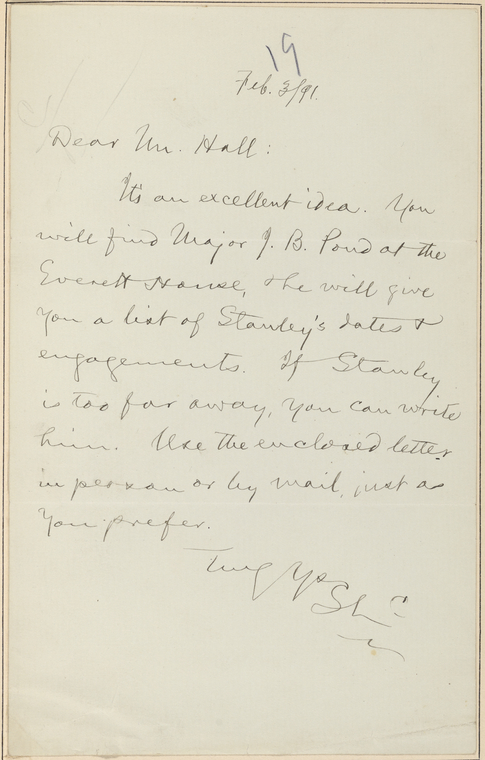 19
Feb. 3/91.
Dear Mr. Hall:
It's an excellent idea. You
will find Major J. B. Pond at the
Everett House, & he will give
you a list of Stanley's dates &
engagements. If Stanley
is too far away, you can write
him. Use the enclosed letter
in person or by mail, just as
you prefer.
Truly Yrs